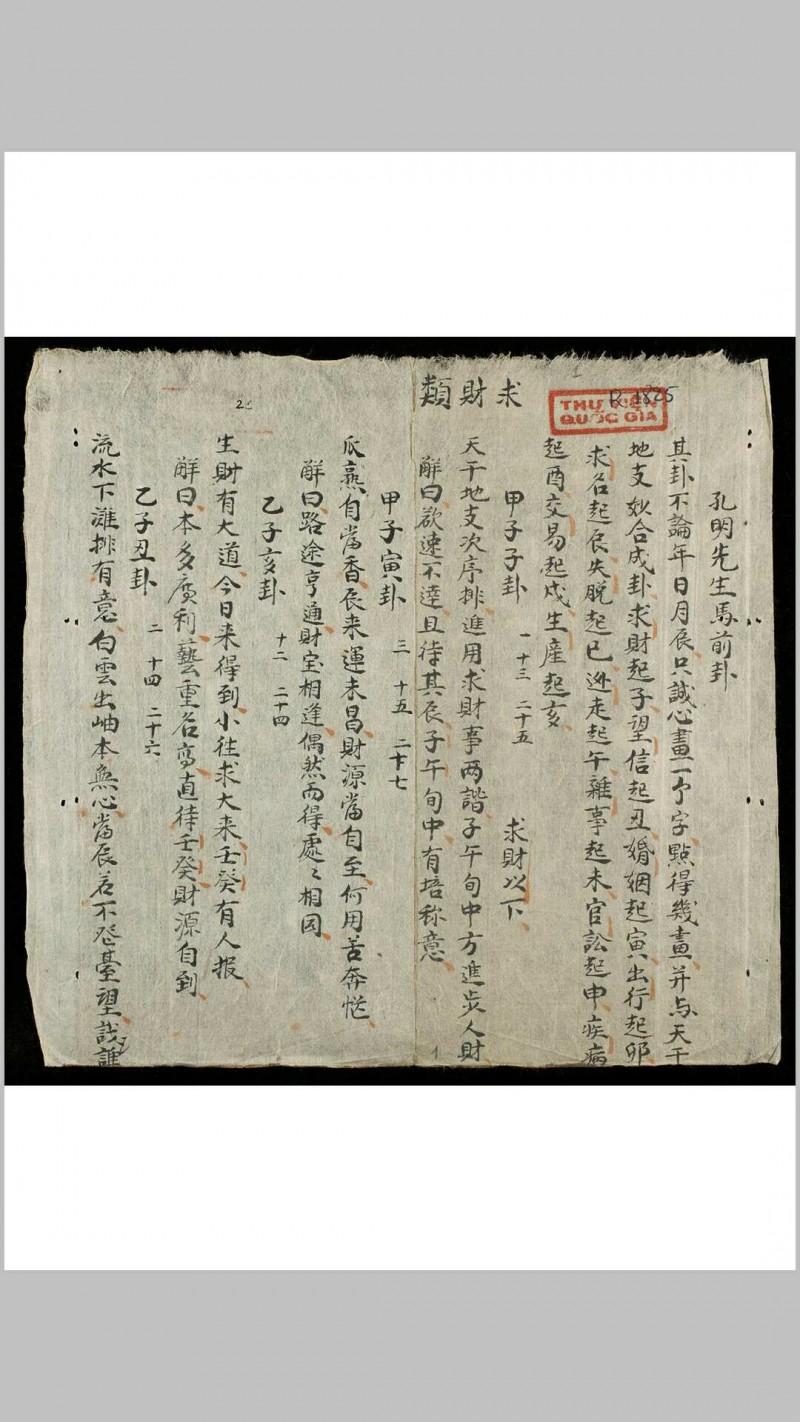 孔明先生馬前卦
其卦不論年日月辰只誠心畫一个字點得幾畫并与天干
地支妙合成卦求財起子望信起丑婚姻起寅出行起卯
求名起辰失脱起巳逊走起午雜事起未官訟起申疾病
起酉交易起戍生產起亥
THƯ VIỆN
QUỐC GIA
求財類
甲子子卦 一 十三 二十五 求財以下
天干地支次序排進用求財事两諧子午旬中方進步人財
觧曰欲速不達且待其辰子午旬中有培称意
甲子寅卦 三 十五 二十七
瓜熟自當香辰来運未昌財源當自至何用苦奔忙
觧曰路途亨通財宝相逢偶然而得處〻相因
乙子亥卦 十二 二十四
生財有大道今日来得到小往求大来壬癸有人报
觧曰本多廣利藝重名高直待壬癸財源自到
乙子丑卦 二 十四 二十六
流水下灘排有意白雲出岫本無心當辰若不登臺望誰